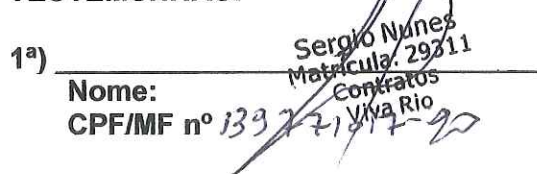 1ª)
Sergio Nunes
Matrícula. 29311
Contratos
Viva Rio
Nome:
CPF/MF nº